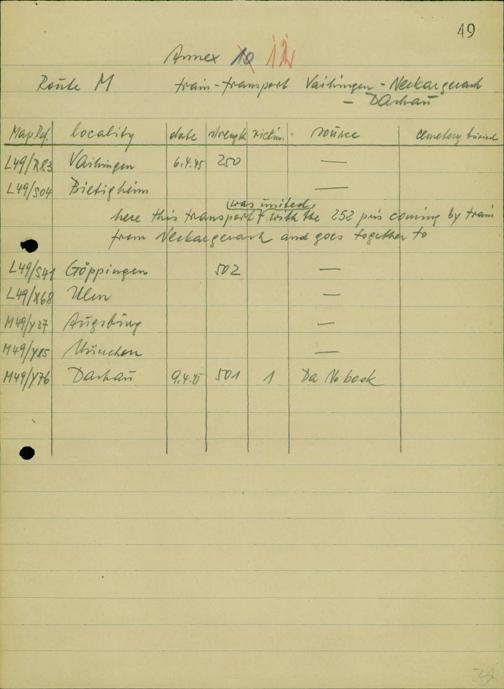 49
Annex 10 12
Route M train-transport Vaihingen - Neckargerach
- Dachau
Map Ref. locality date strength victim source cemetery
L49/R83 Vaihingen 6.4.45 250 —
L49/S04 Bietigheim —
was united
here this transport with the 252 pris coming by train
from Neckargerach and goes together to
L49/S41 Göppingen 502 —
L49/X68 Ulm —
M49/Y37 Augsburg —
M49/Y85 München —
M49/Y76 Dachau 9.4.45 501 1 Da No book